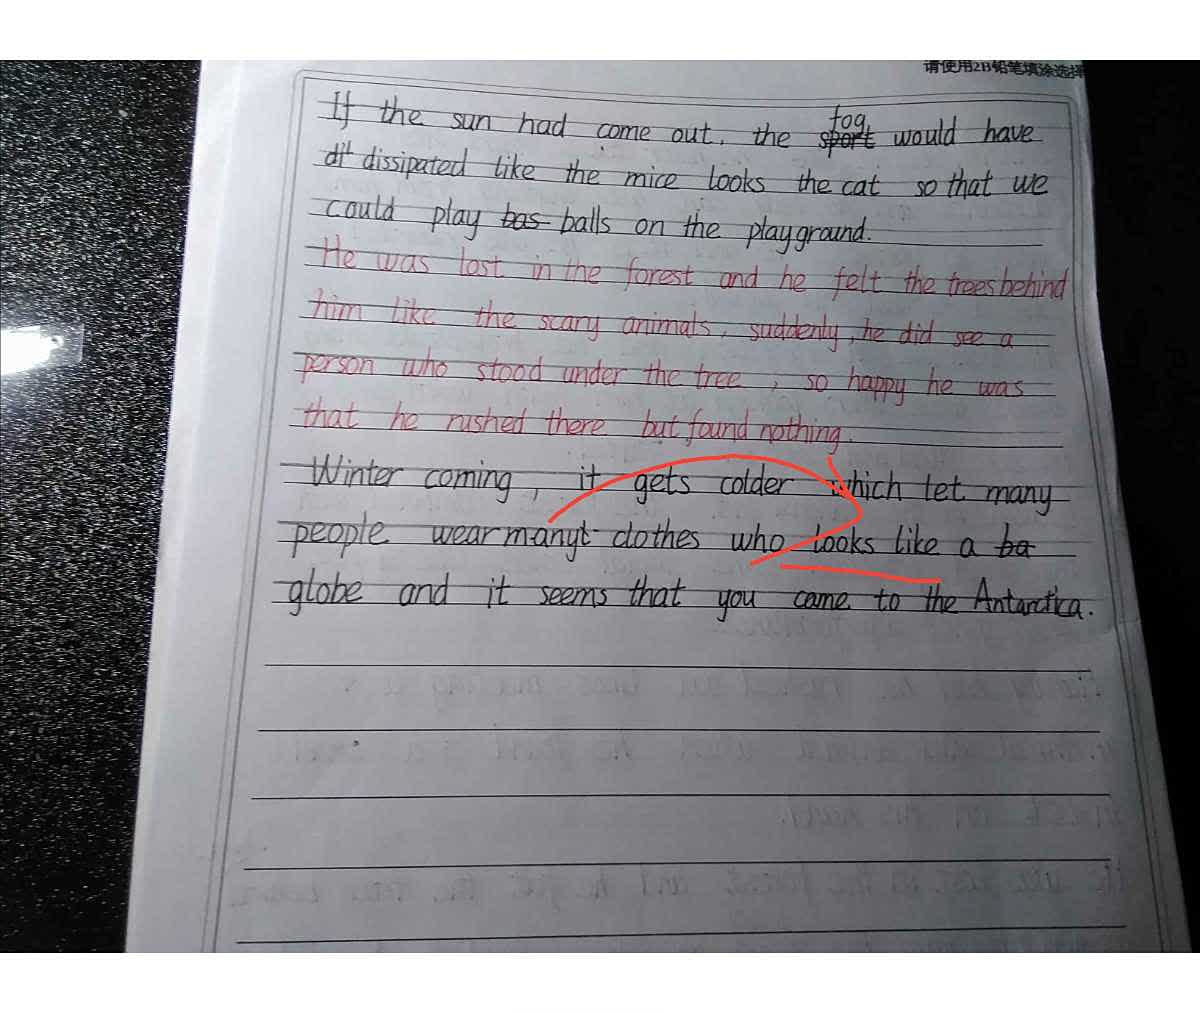 请使用2B铅笔填涂选择
If the sun had come out, the sport fog would have
dit dissipated like the mice looks the cat so that we
could play bas balls on the playground.
He was lost in the forest and he felt the trees behind
him like the scary animals, suddenly, he did see a
person who stood under the tree, so happy he was
that he rushed there but found nothing.
Winter coming, it gets colder which let many
people wear manyt clothes who looks like a ba
globe and it seems that you came to the Antarctica.